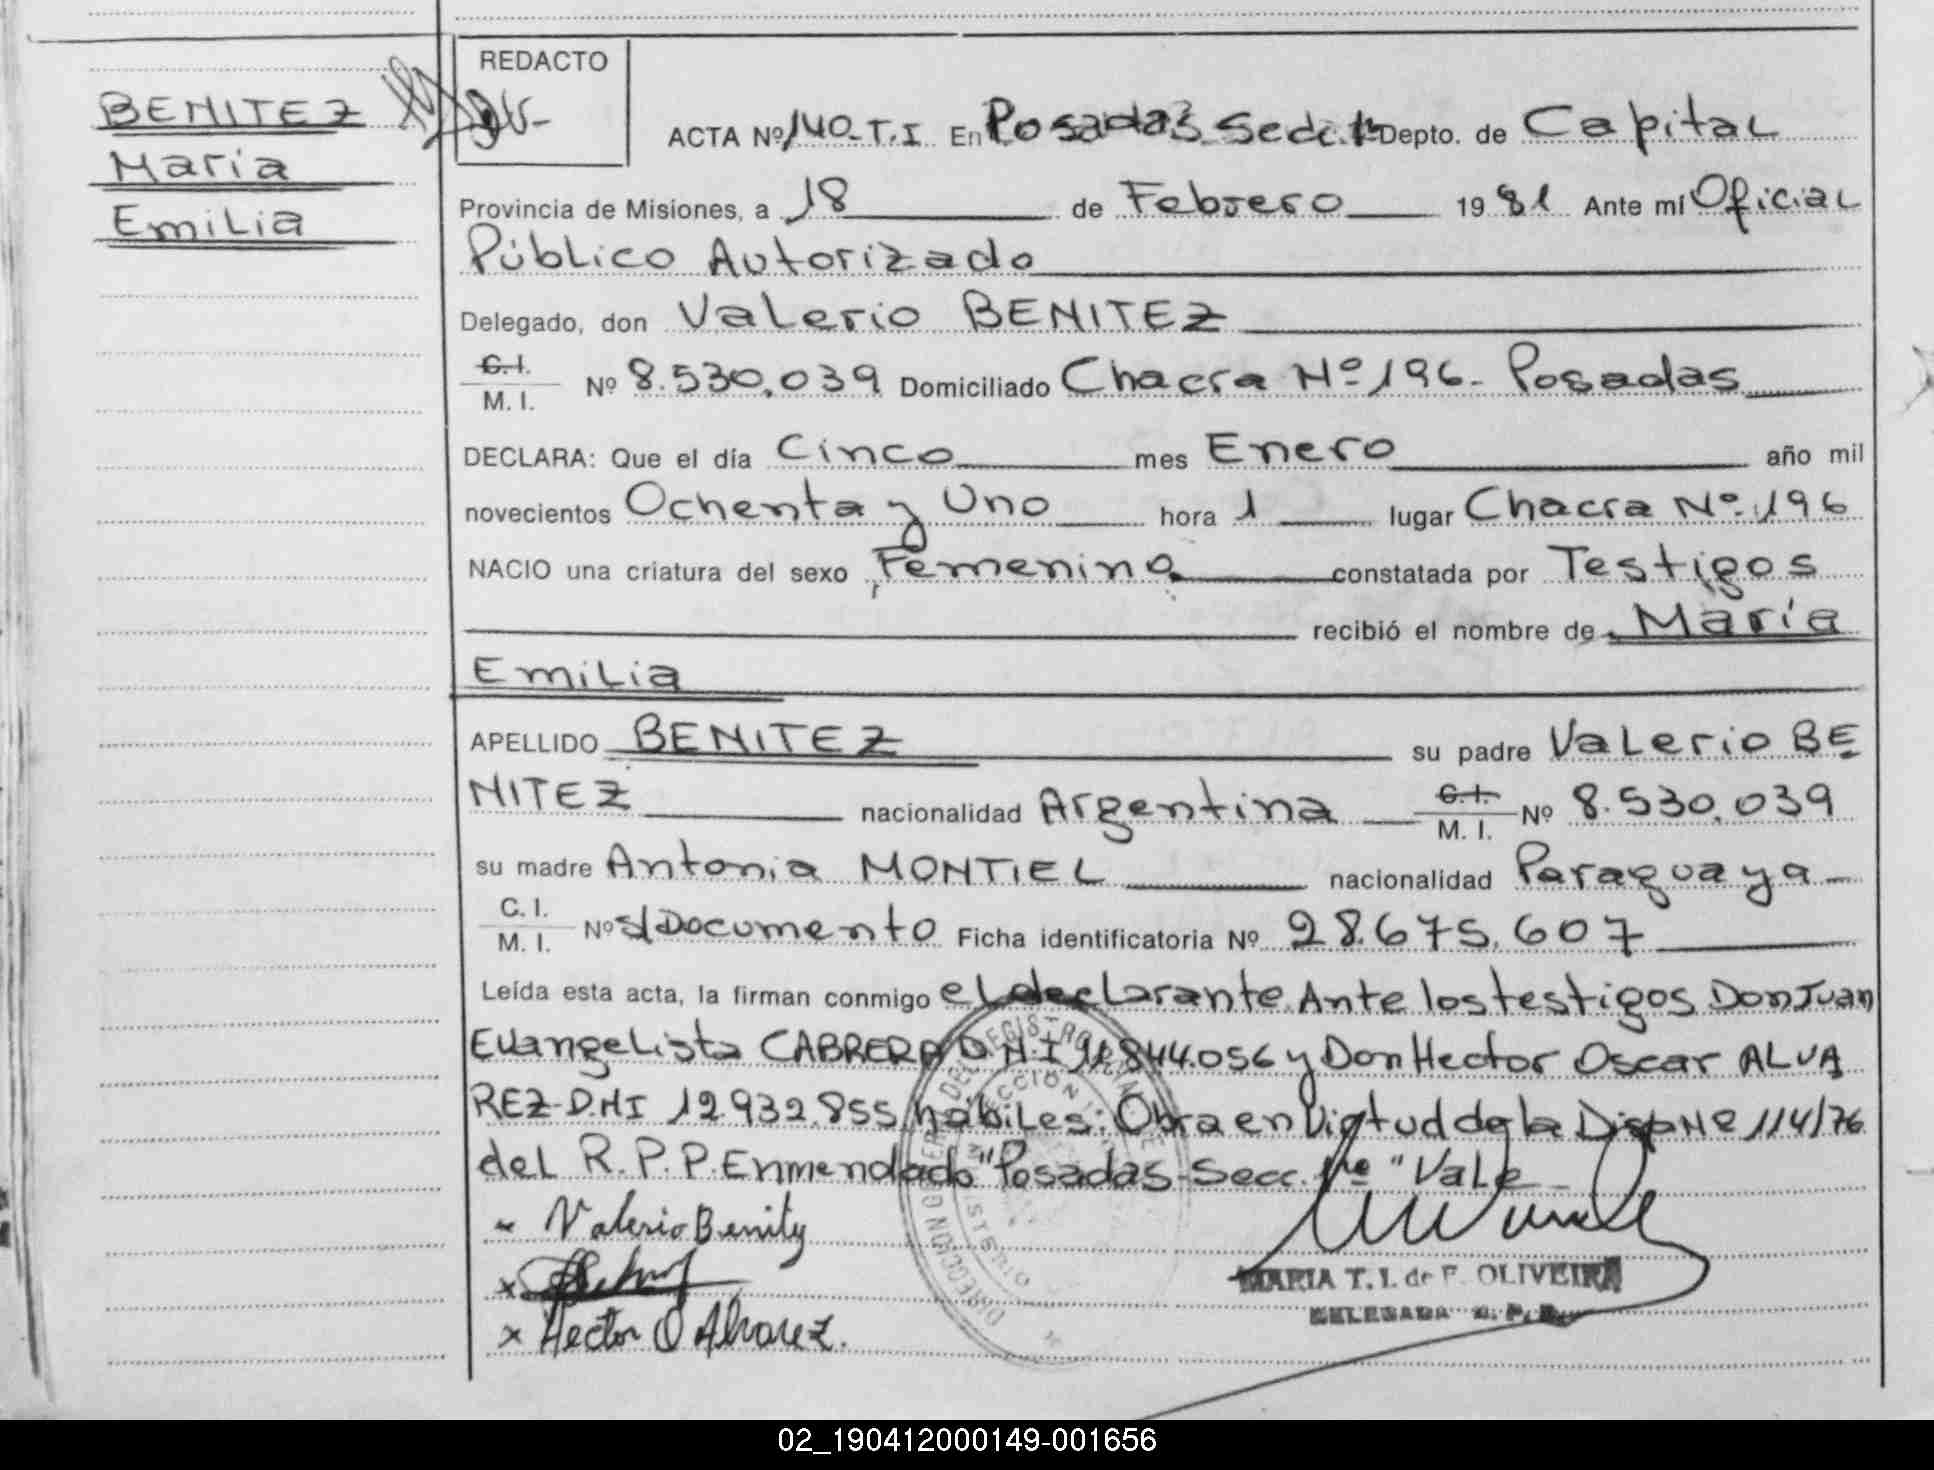 REDACTO
BENITEZ
Maria
Emilia
ACTA Nº 140-T.I En Posadas Secc. 1ª Depto. de Capital
Provincia de Misiones, a 18 de Febrero 1981 Ante mí Oficial
Público Autorizado
Delegado, don Valerio BENITEZ
C.I.
M. I. Nº 8.530.039 Domiciliado Chacra Nº 196. Posadas
DECLARA: Que el día Cinco mes Enero año mil
novecientos Ochenta y Uno hora 1 lugar Chacra Nº 196
NACIO una criatura del sexo Femenino constatada por Testigos
recibió el nombre de María
Emilia
APELLIDO BENITEZ su padre Valerio BE
NITEZ nacionalidad Argentina C.I.
M. I. Nº 8.530.039
su madre Antonia MONTIEL nacionalidad Paraguaya
C. I.
M. I. Nº s/Documento Ficha identificatoria Nº 28.675.607
Leída esta acta, la firman conmigo el declarante. Ante los testigos Don Juan
Evangelista CABRERA D.N.I 11.844.056 y Don Hector Oscar ALVA
REZ-D.NI 12.932.855 hábiles. Obra en Virtud de la Disp Nº 114/76
del R.P.P. Enmendado "Posadas-Secc. 1ª" Vale
x Valerio Benitez
x
x Hector O Alvarez.
MARIA T. I. de F. OLIVEIRA
DELEGADA R. P. P.
02_190412000149-001656